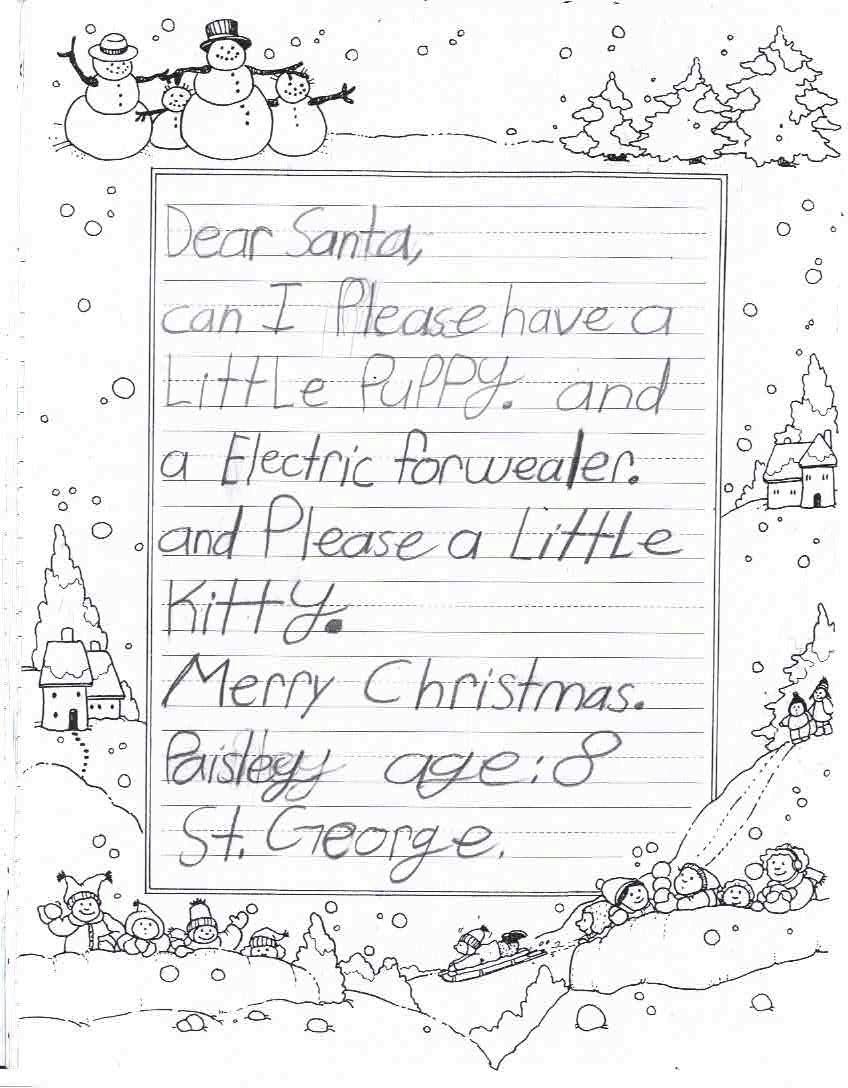 Dear Santa,
can I Please have a
Little Puppy. and
a Electric forwealer.
and Please a Little
Kitty.
Merry Christmas.
Paisley age: 8
St. George.